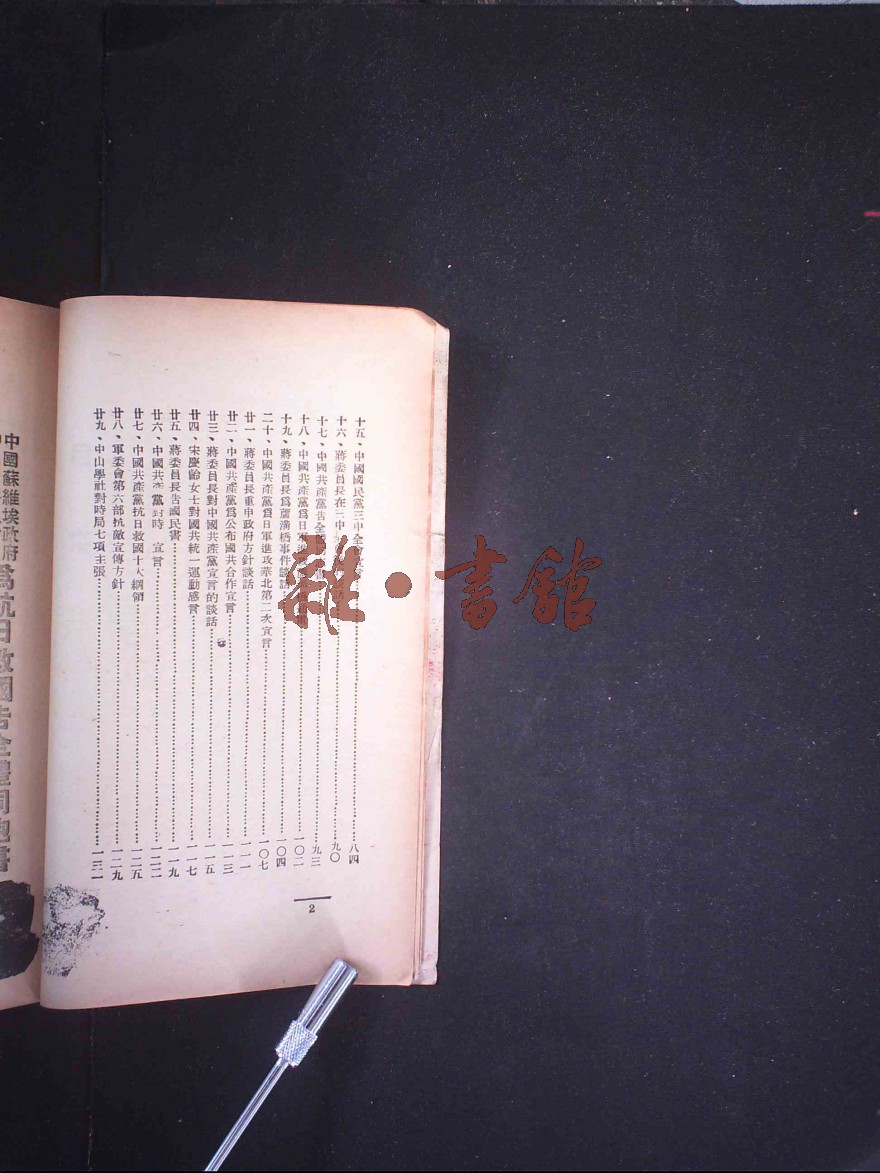 十五、中國國民黨三中全會……八四
十六、蔣委員長在三中……談話……九〇
十七、中國共產黨告全國……九三
十八、中國共產黨爲日軍進……一〇二
十九、蔣委員長爲蘆溝橋事件談話……一〇四
二十、中國共產黨爲日軍進攻華北第二次宣言……一〇七
廿一、蔣委員長重申政府方針談話……一一一
廿二、中國共產黨爲公布國共合作宣言……一一三
廿三、蔣委員長對中國共產黨宣言的談話……一一五
廿四、宋慶齡女士對國共統一運動感言……一一七
廿五、蔣委員長告國民書……一一九
廿六、中國共產黨對時 宣言……一二二
廿七、中國共產黨抗日救國十大綱領……一二五
廿八、軍委會第六部抗敵宣傳方針……一二九
廿九、中山學社對時局七項主張……一三一
2
中國蘇維埃政府
爲抗日救國告全體同胞書
雜·書館